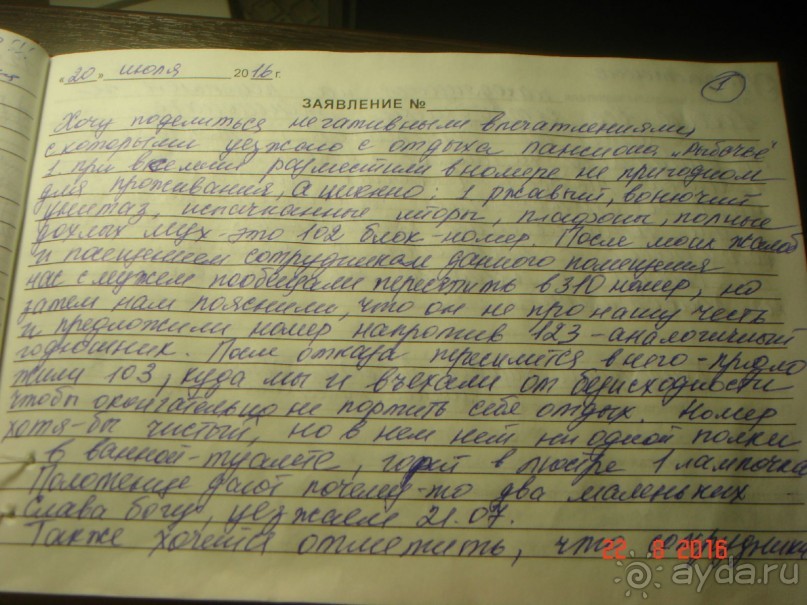 «20» июля 2016 г.
1
ЗАЯВЛЕНИЕ №
Хочу поделиться негативными впечатлениями,
с которыми уезжаю с отдыха пансиона „Рыбачье"
1 при вселении разместили в номере не пригодном
для проживания, а именно: 1 ржавый, вонючий
унитаз, испачканные шторы, плафоны, полные
дохлых мух - это 102 блок-номер. После моих жалоб
и посещением сотрудникам данного помещения
нас с мужем пообещали переселить в 310 номер, но
затем нам пояснили, что он не про нашу честь
и предложили номер напротив 123 - аналогичный
гадюшник. После отказа переселится в него - предло
жили 103, куда мы и въехали от безисходности
чтобы окончательно не портить себе отдых. Номер
хотя-бы чистый, но в нем нет ни одной полки
в ванной-туалете, горит в люстре 1 лампочка
Полотенце дают почему-то два маленьких
Слава богу, уезжаем 21.07.
Также хочется отметить, что сотрудники
22 8 2016
ayda.ru